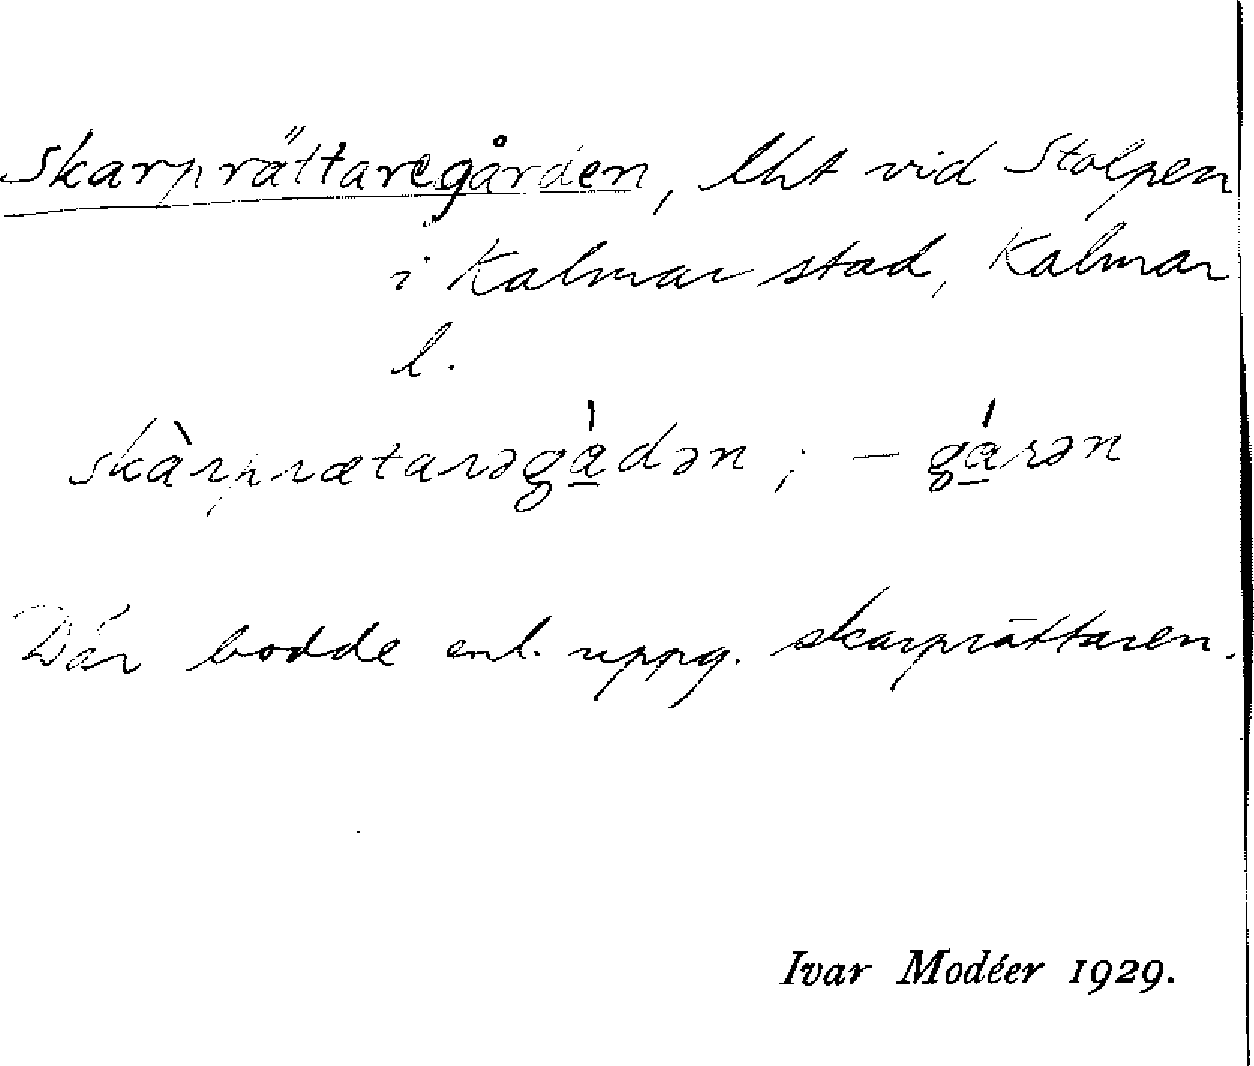 Skarprättaregården, lht vid Stolpen
i Kalmar stad, Kalmar
l.
skàrprætarəgá̱dən ; – gá̱rən
Där bodde enl. uppg. skarprättaren.
Ivar Modéer 1929.